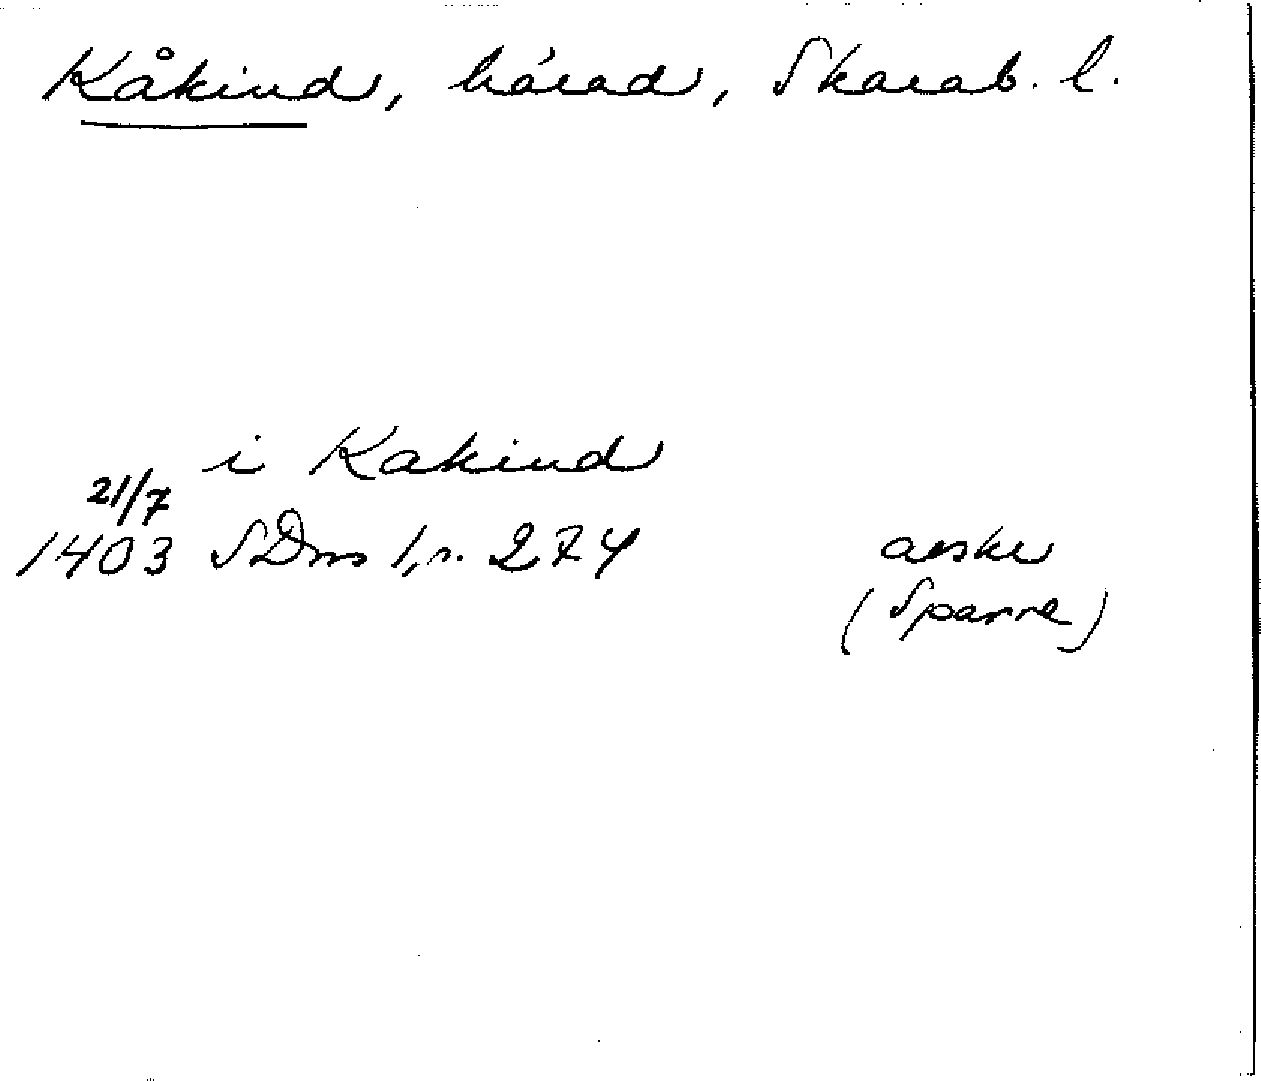 Kåkind, härad, Skarab. l.
i Kakind
21/7
1403 SDns 1, n. 274
avskr
(Sparre)